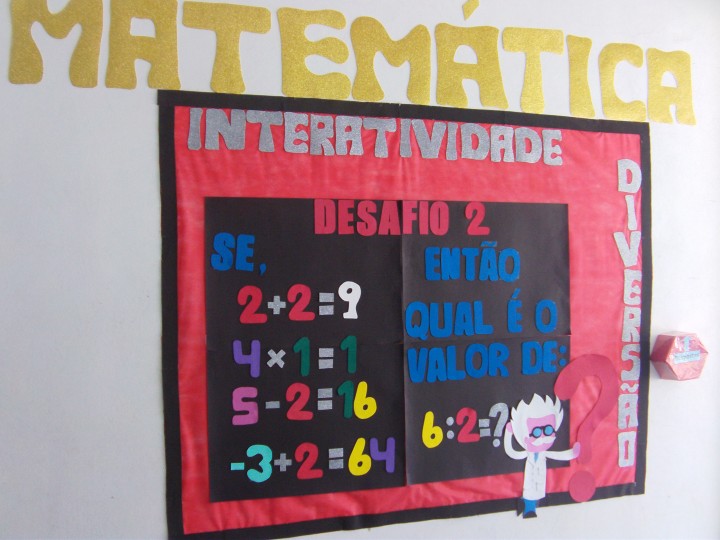 MATEMÁTICA
INTERATIVIDADE
DIVERSÃO
DESAFIO 2
SE,
2+2=9
4×1=1
5-2=16
-3+2=64
ENTÃO
QUAL É O
VALOR DE:
6:2=?
?